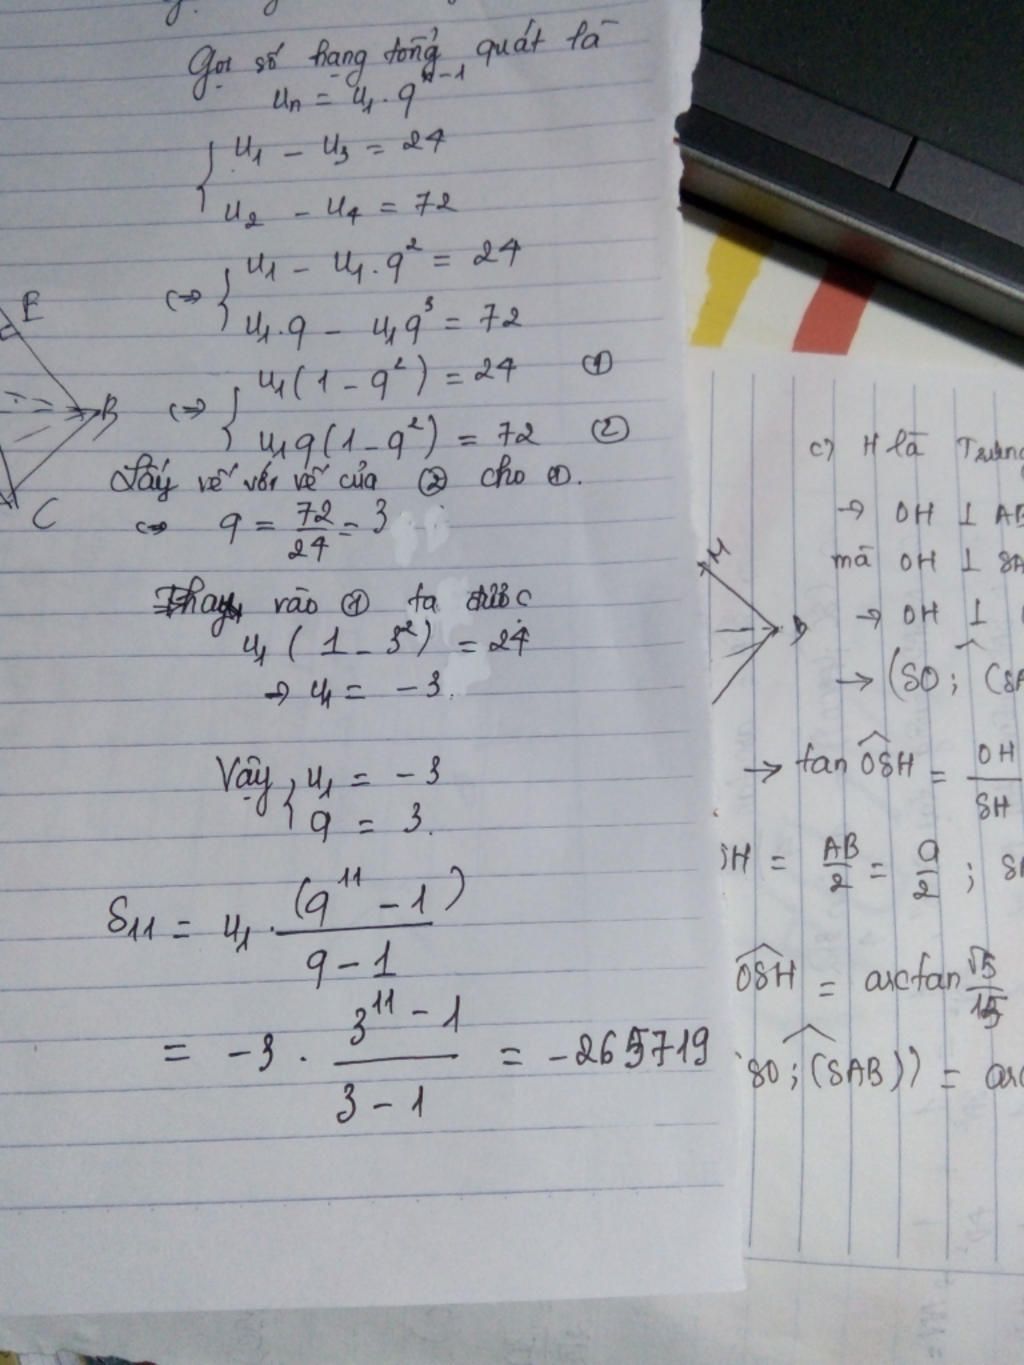 Gọi số hạng tổng quát là
uₙ = u₁ . qⁿ⁻¹
u₁ - u₃ = 24
u₂ - u₄ = 72
<=> u₁ - u₁.q² = 24
u₁.q - u₁q³ = 72
<=> u₁(1 - q²) = 24 ①
u₁q(1 - q²) = 72 ②
Lấy vế với vế của ② cho ①.
<=> q = 72/24 = 3
Thay vào ① ta được
u₁ (1 - 3²) = 24
→ u₁ = -3.
Vậy u₁ = -3
q = 3.
S₁₁ = u₁ . (q¹¹ - 1)/(q - 1)
= -3 . (3¹¹ - 1)/(3 - 1) = -265719
E
B
C
c) H là Trung
→ OH ⊥ AB
mà OH ⊥ SA
→ OH ⊥
→ (SO; (SA
→ tan OSH = OH/SH
SH = AB/2 = a/2 ; SA
OSH = arctan √5/15
SO; (SAB)) = arc